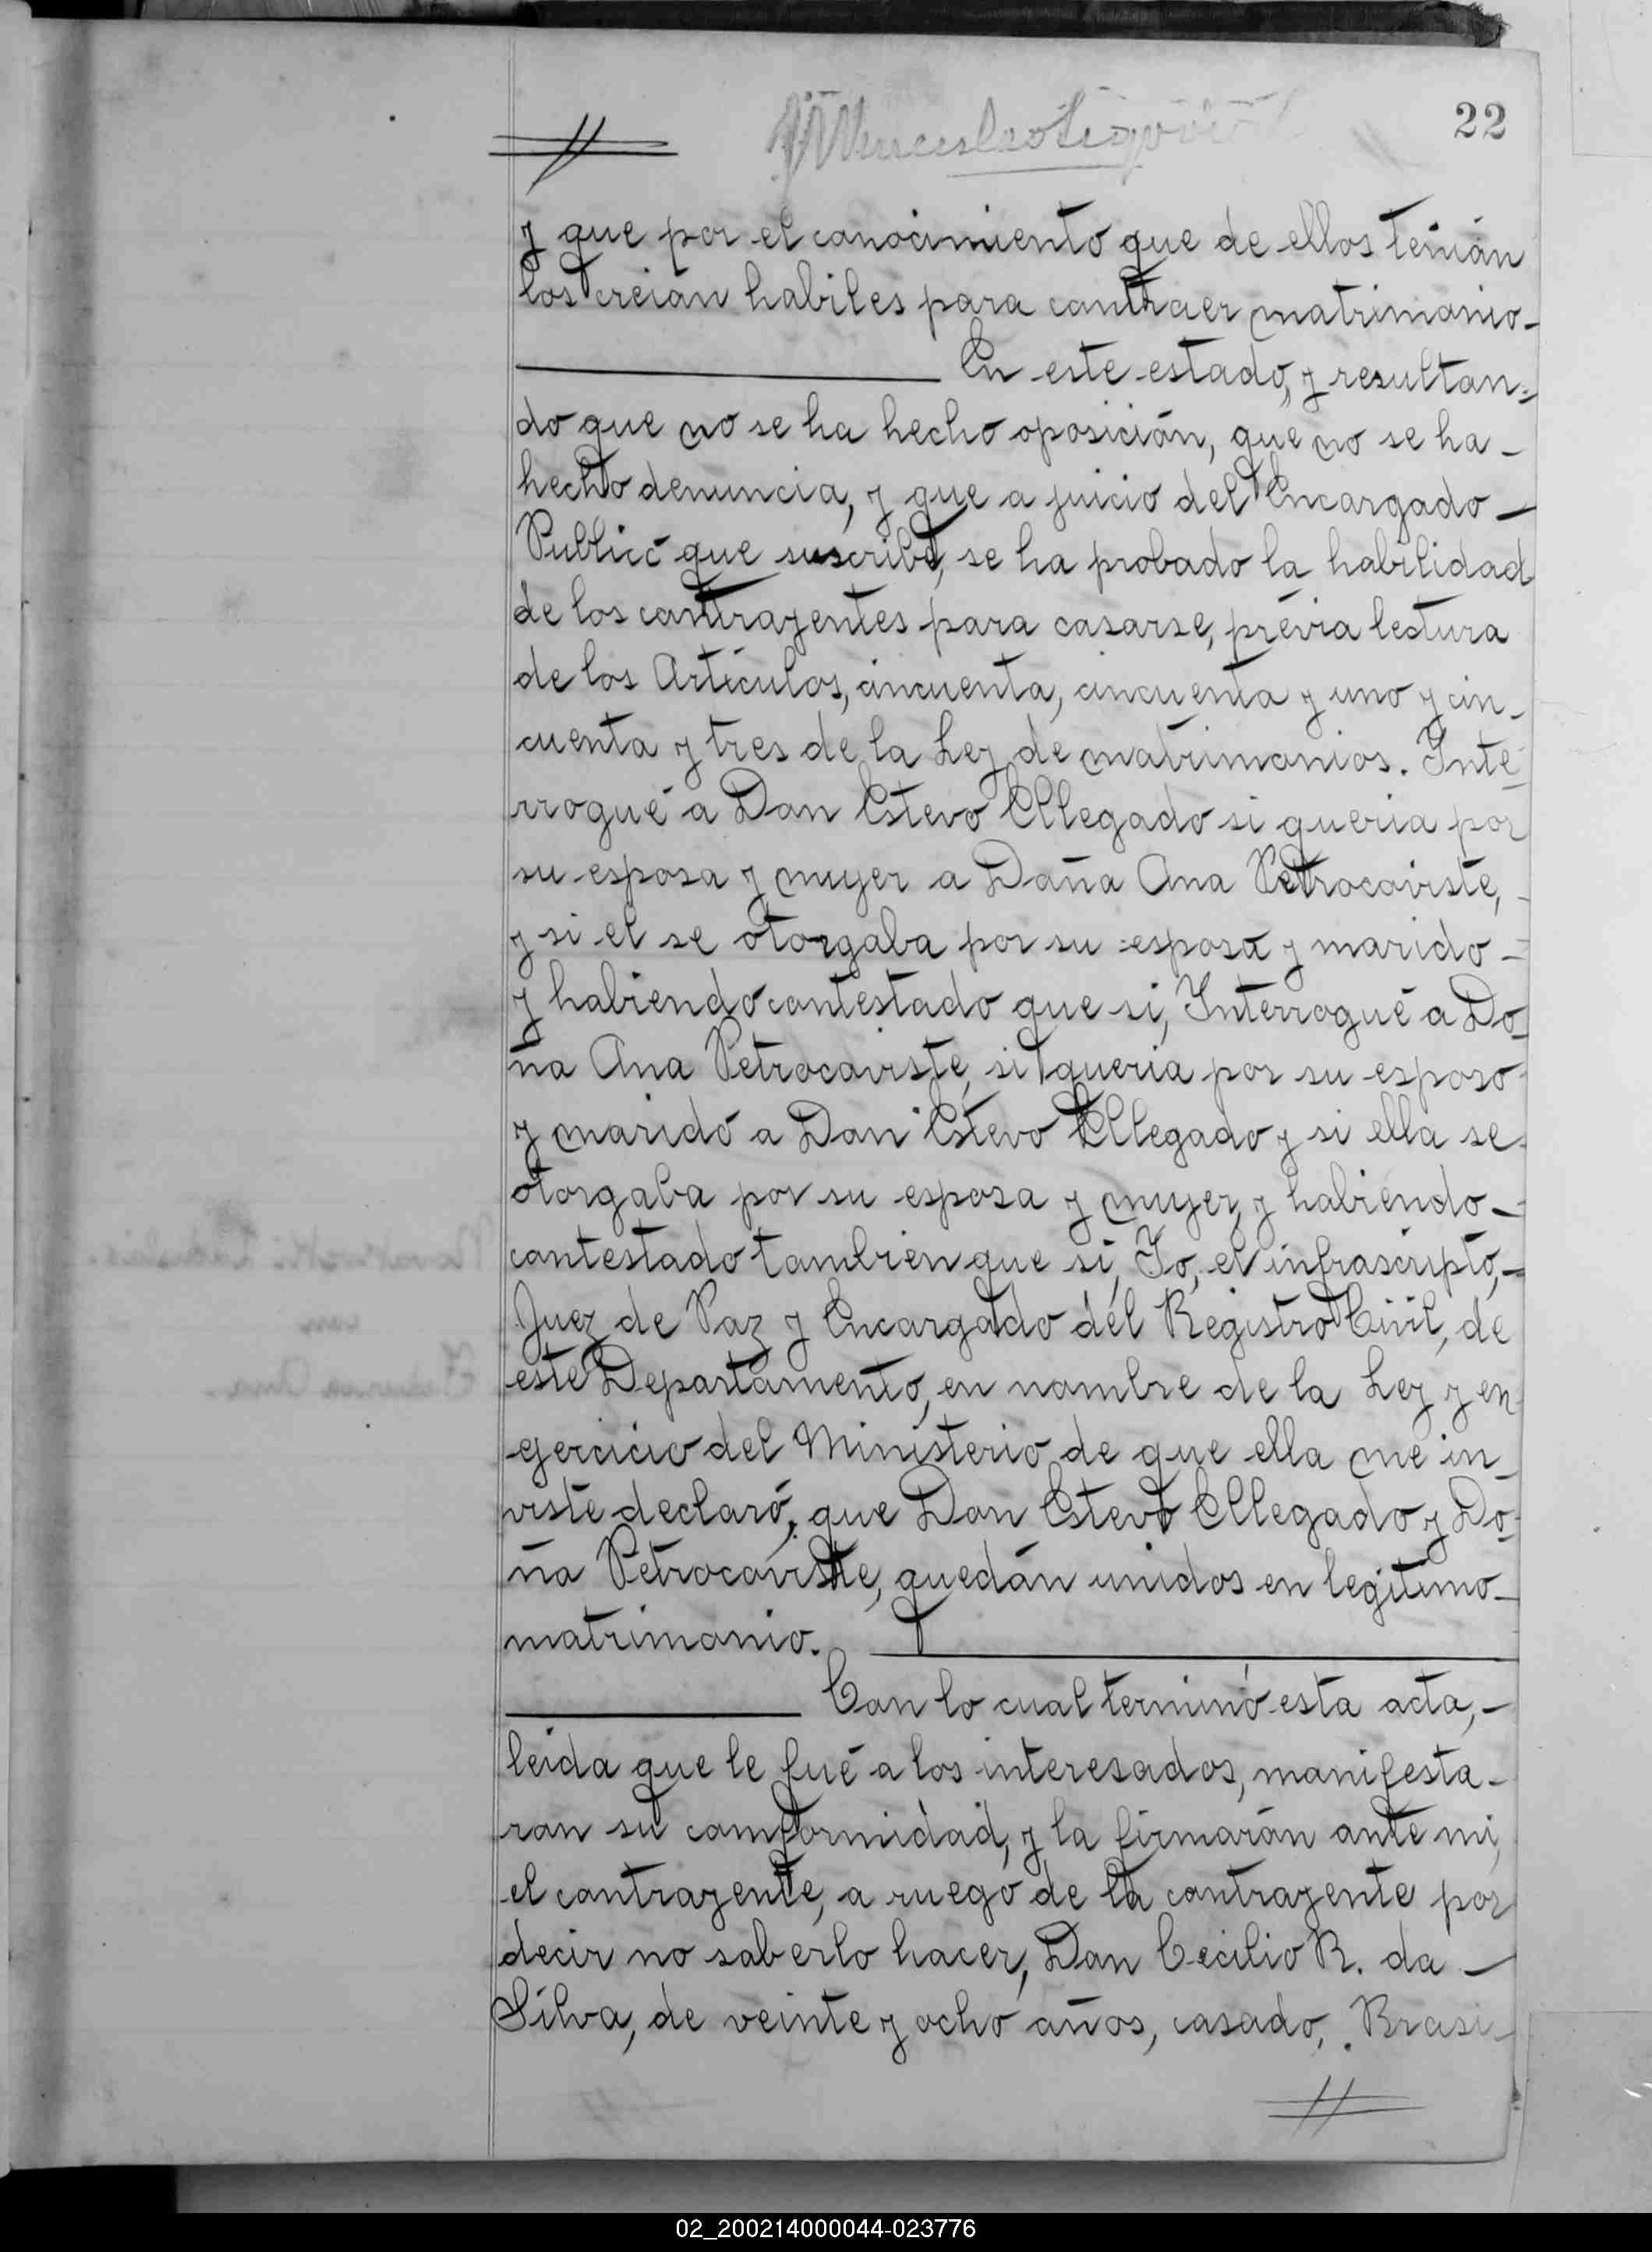 22
y que por el conocimiento que de ellos tenián
los creián habiles para contraer matrimonio-
En este estado, y resultan-
do que no se ha hecho oposición, que no se ha-
hecho denuncia, y que a juicio del Encargado-
Publicó que suscribe, se ha probado la habilidad
de los contrayentes para casarse, prévia lectura
de los Artículos, cincuenta, cincuenta y uno y cin-
cuenta y tres de la Ley de matrimonios. Inte-
rrogué a Don Estevo Ellegado si queria por
su esposa y muyer a Doña Ana Petrocoviste,-
y si el se otorgaba por su esposa y marido-
y habiendo contestado que si, Interrogué a Do-
ña Ana Petrocoviste, si queria por su esposo
y marido a Don Estevo Ellegado y si ella se
otorgaba por su esposa y muyer, y habiendo-
contestado tambien que si, Yo, el infrascripto,-
Juez de Paz y Encargado del Registro Civil, de
este Departamento, en nombre de la Ley y en
egercicio del Ministerio de que ella me in-
viste declaró, que Don Estevo Ellegado y Do-
ña Petrocoviste, quedán unidos en legitimo-
matrimonio.
Con lo cual terminó esta acta,-
leida que le fué a los interesados, manifesta-
ron su comformidad, y la firmarán ante mi,
el contrayente, a ruego de la contrayente por
decir no saberlo hacer, Don Cecilio R. da-
Silva, de veinte y ocho años, casado, Brasi-
02_200214000044-023776